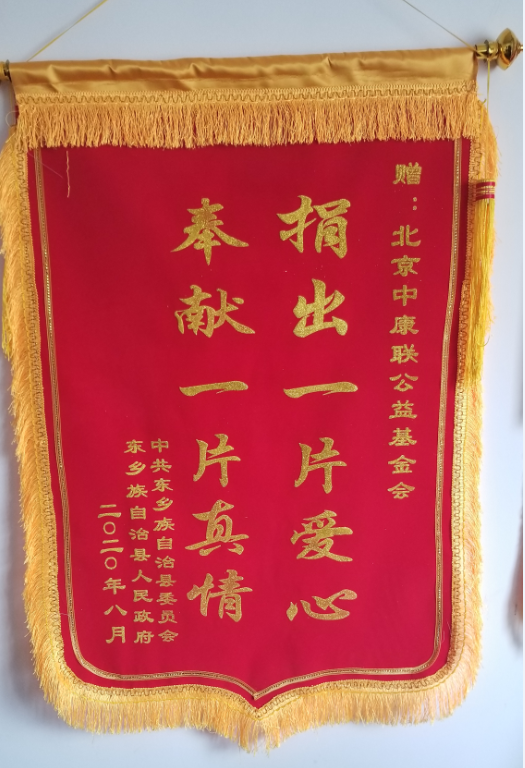 赠：北京中康联公益基金会
捐出一片爱心
奉献一片真情
中共东乡族自治县委员会
东乡族自治县人民政府
二〇二〇年八月